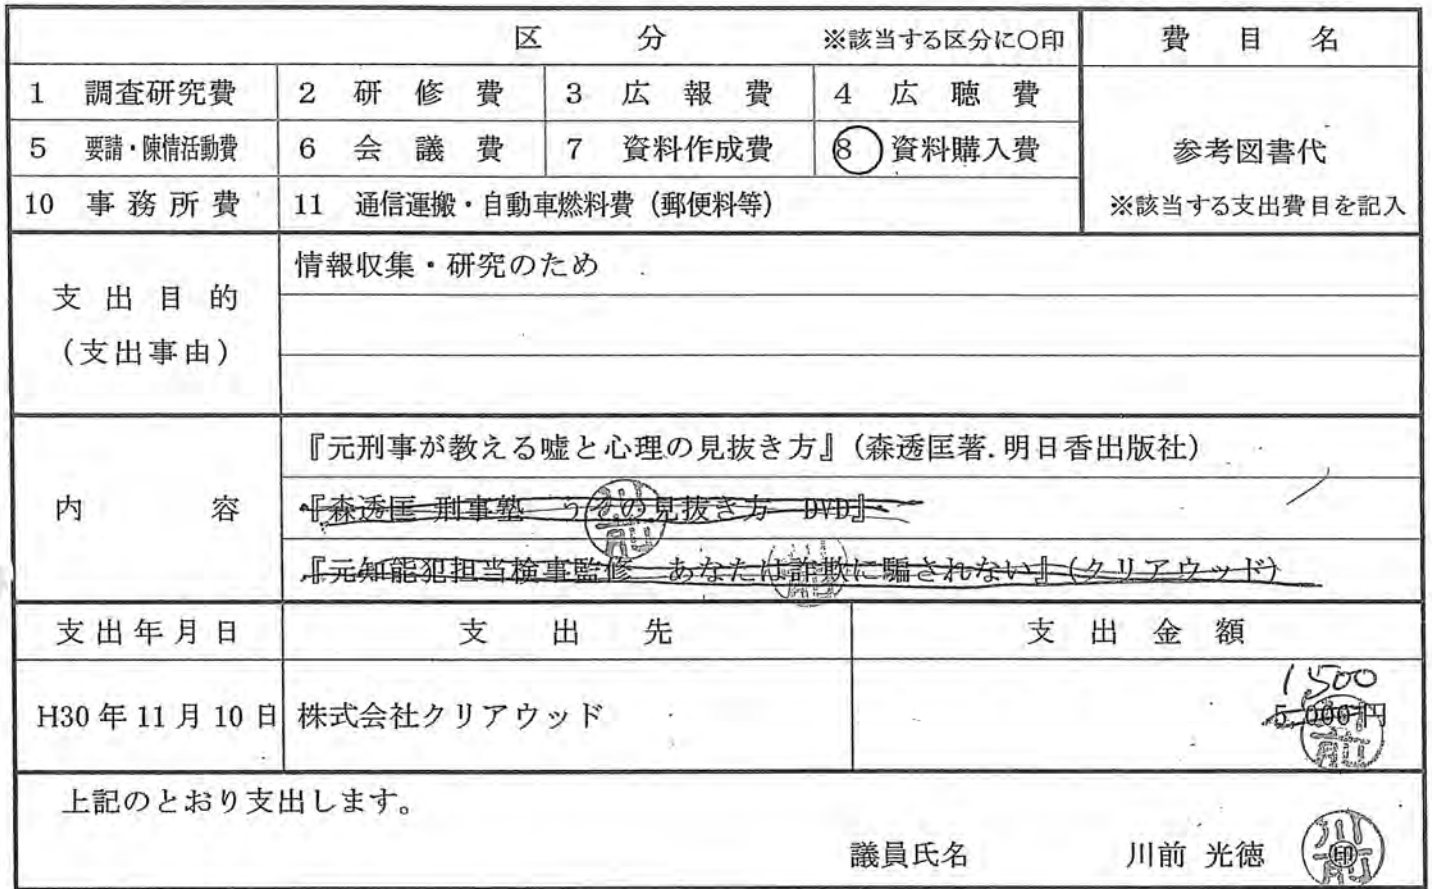 区　分　※該当する区分に○印　費　目　名
1　調査研究費　2　研　修　費　3　広　報　費　4　広　聴　費
5　要請・陳情活動費　6　会　議　費　7　資料作成費　8　資料購入費　参考図書代
10　事務所費　11　通信運搬・自動車燃料費（郵便料等）　※該当する支出費目を記入
支出目的
（支出事由）
情報収集・研究のため
内　容
『元刑事が教える嘘と心理の見抜き方』（森透匡著.明日香出版社）
『森透匡 刑事塾　うその見抜き方　DVD』
『元知能犯担当検事監修　あなたは詐欺に騙されない』（クリアウッド）
支出年月日　支　出　先　支　出　金　額
1,500
H30年11月10日　株式会社クリアウッド　5,000円
上記のとおり支出します。
議員氏名　川前 光徳　印